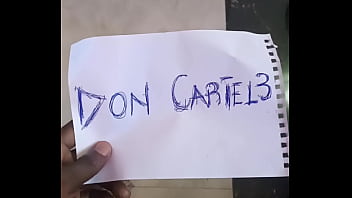 DON CARTEL3